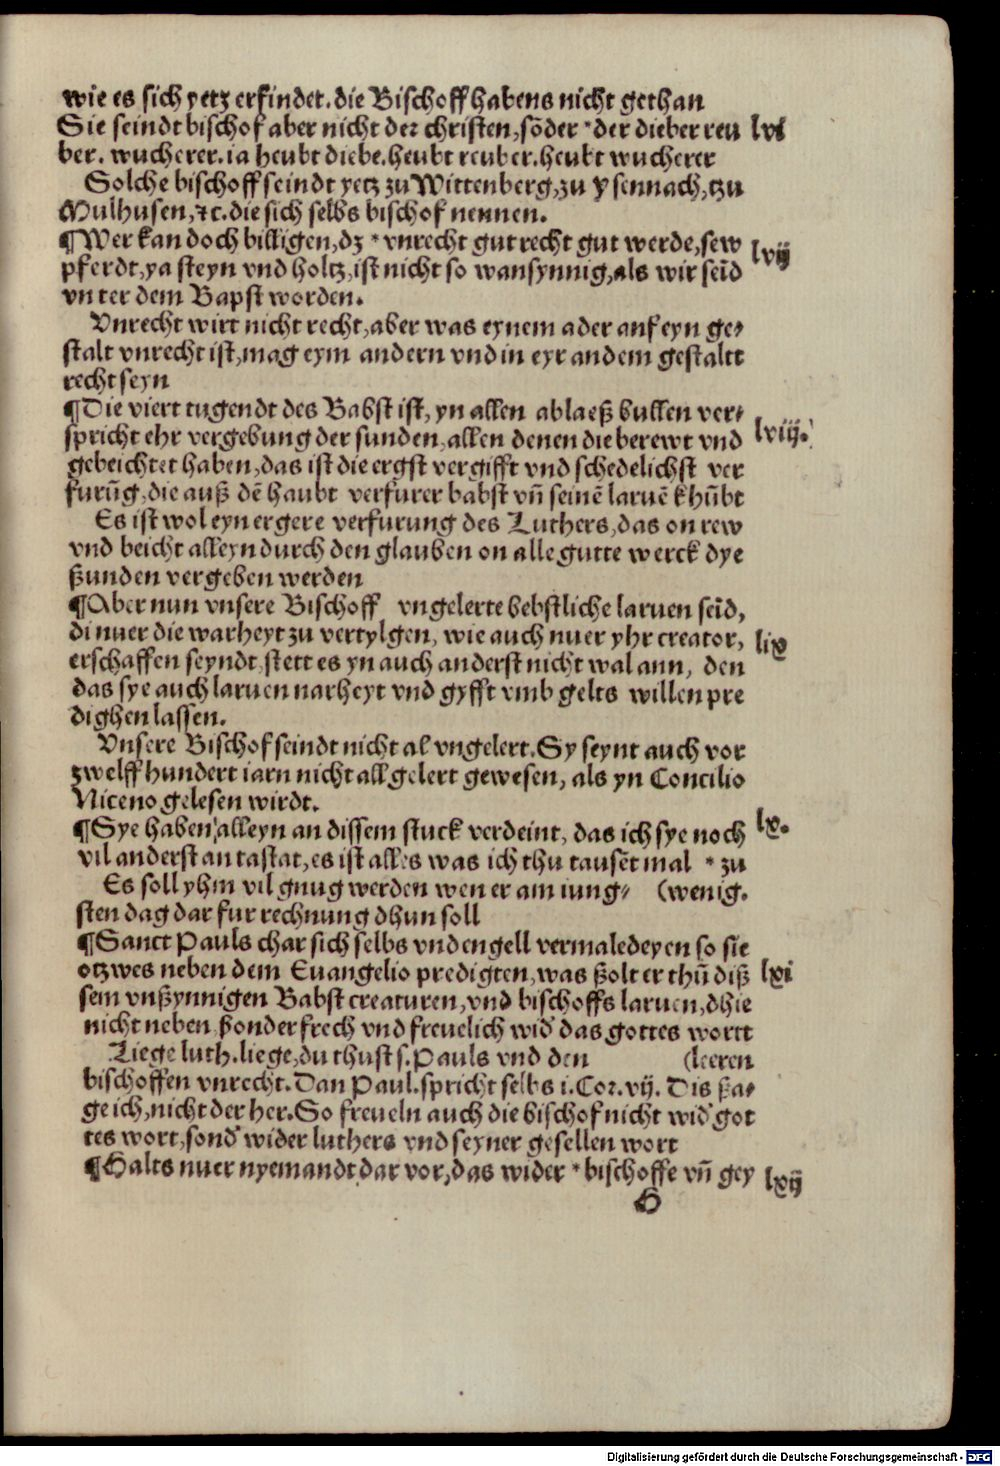 wie es sich yetz erfindet. die Bischoff habens nicht gethan
Sie seindt bischof aber nicht der christen, sõder * der dieber reu lvi
ber. wucherer. ia heubt diebe. heubt reuber. heubt wucherer
Solche bischoff seindt yetz zu Wittenberg, zu ysennach, tzu
Mulhusen, ⁊c. die sich selbs bischof nennen.
¶ Wer kan doch billigen, dz * vnrecht gut recht gut werde, sew lvij
pferdt, ya steyn vnd holtz, ist nicht so wansynnig, als wir seĩd
vnter dem Bapst worden.
Vnrecht wirt nicht recht, aber was eynem ader anf eyn ge⸗
stalt vnrecht ist, mag eym andern vnd in eyr andem gestaltt
recht seyn
¶ Die viert tugendt des Babst ist, yn allen ablaeß bullen ver⸗
spricht ehr vergebung der sunden, allen denen die berewt vnd lviij.
gebeichtet haben, das ist die ergst vergifft vnd schedelichst ver
furũg, die auß dẽ haubt verfurer babst vñ seinẽ laruẽ khũbt
Es ist wol eyn ergere verfurung des Luthers, das on rew
vnd beicht alleyn durch den glauben on alle gutte werck dye
ßunden vergeben werden
¶ Aber nun vnsere Bischoff vngelerte bebstliche laruen seĩd,
di nuer die warheyt zu vertylgen, wie auch nuer yhr creator, lix
erschaffen seyndt, stett es yn auch anderst nicht wal ann, den
das sye auch laruen narheyt vnd gyfft vmb gelts willen pre
dighen lassen.
Vnsere Bischof seindt nicht al vngelert. Sy seynt auch vor
zwelff hundert iarn nicht all gelert gewesen, als yn Concilio
Niceno gelesen wirdt.
¶ Sye haben alleyn an dissem stuck verdeint, das ich sye noch lx.
vil anderst an tastat, es ist alles was ich thu tausẽt mal * zu
Es soll yhm vil gnug werden wen er am iung⸗ (wenig.
sten dag dar fur rechnung dhun soll
¶ Sanct Pauls char sich selbs vnd engell vermaledeyen so sie
otzwes neben dem Euangelio predigten, was ßolt er thũ diß lxi
sem vnßynnigen Babst creaturen, vnd bischoffs laruen, dhie
nicht neben ßonder frech vnd freuelich wid' das gottes wortt
Liege luth. liege, du thust s. Pauls vnd den (leeren
bischoffen vnrecht. Dan Paul. spricht selbs i. Cor. vij. Dis ßa⸗
ge ich, nicht der her. So freueln auch die bischof nicht wid' got
tes wort, sond' wider luthers vnd seyner gesellen wort
¶ Halts nuer nyemandt dar vor, das wider * bischoffe vñ gey lxij
H
Digitalisierung gefördert durch die Deutsche Forschungsgemeinschaft - DFG